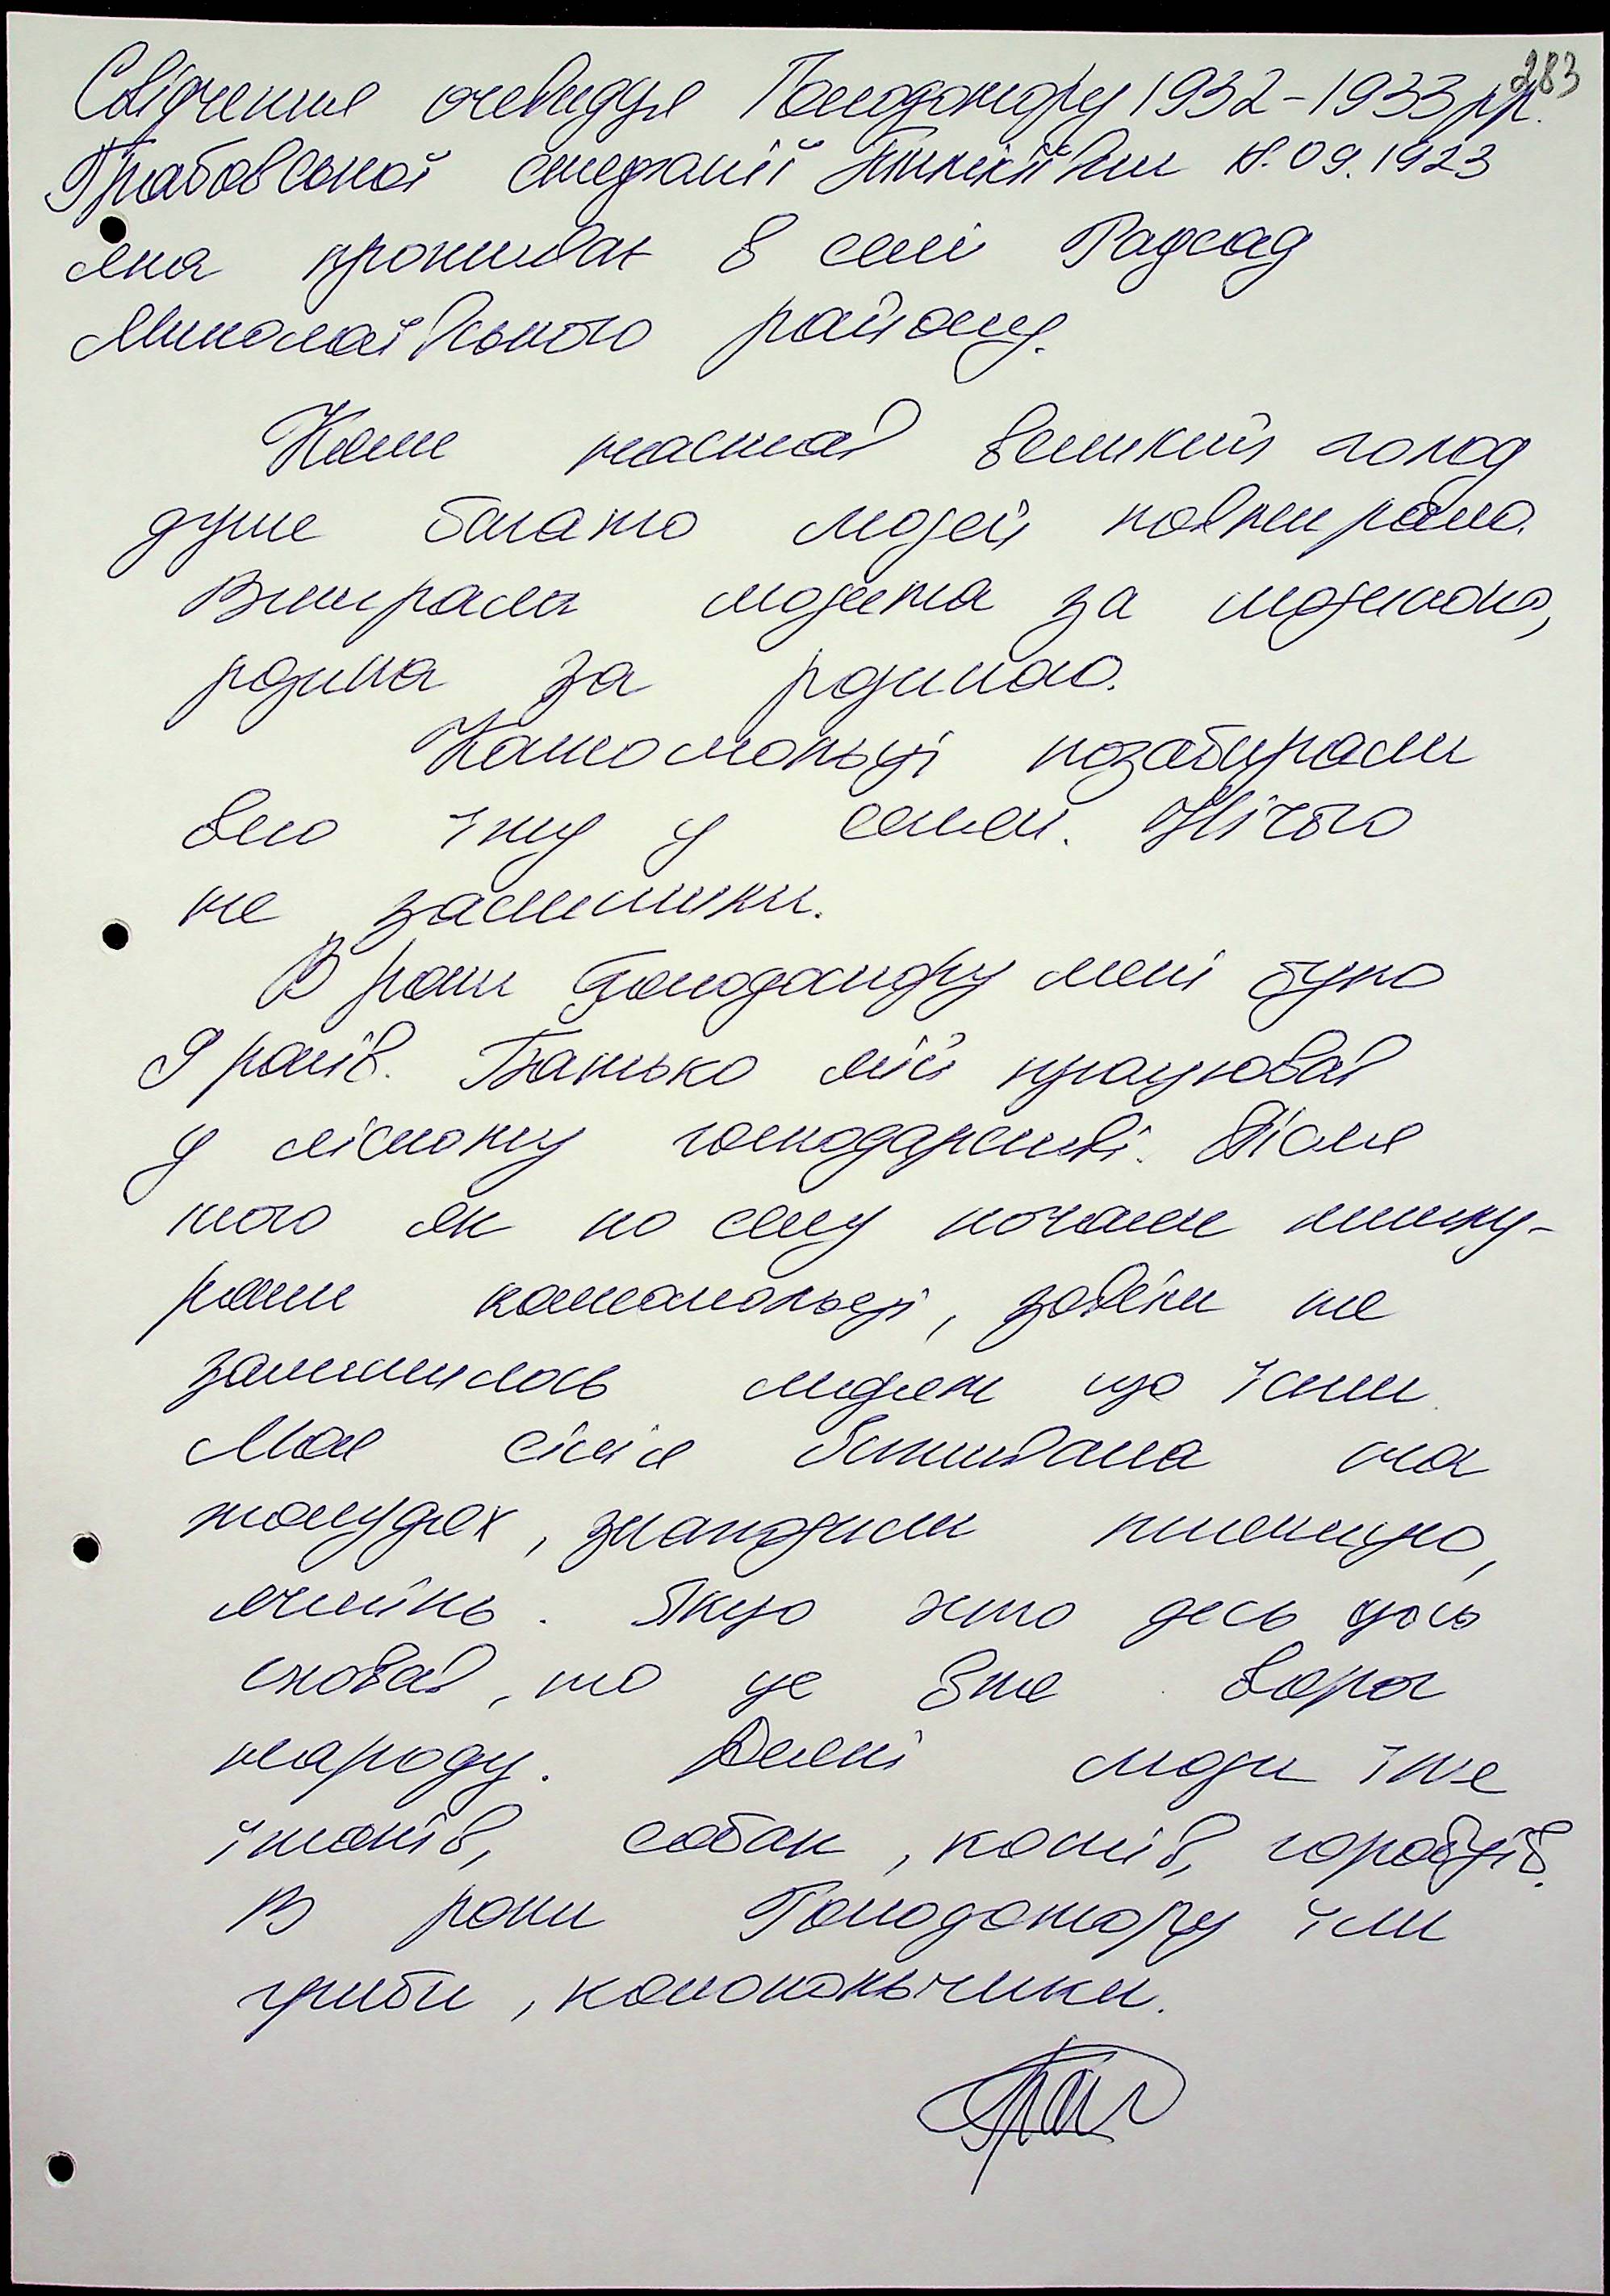 283
Свідчення очевидця Голодомору 1932-1933 рр.
Грабовської Стефанії 09.1923
яка проживає в селі Радсад
Миколаївського району.
Коли настав великий голод
дуже багато людей повмирало.
Вимирали людина за людиною,
родина за родиною.
Комсомольці позабирали
всю їжу у селян. Нічого
не залишили.
В роки Голодомору мені було
9 років. Батько мій працював
у лісному господарстві. Після
того як по селу почали
комсомольці, зовсім не
залишилось людям що їсти.
Моя сім'я виживала на
жолудях, знаходили пшеницю,
ячмінь. Якщо хто десь щось
сховав, то це вже ворог
народу. Деякі люди їли
їжаків, собак, котів, горобців.
В роки Голодомору їли
гриби, колокольчики.